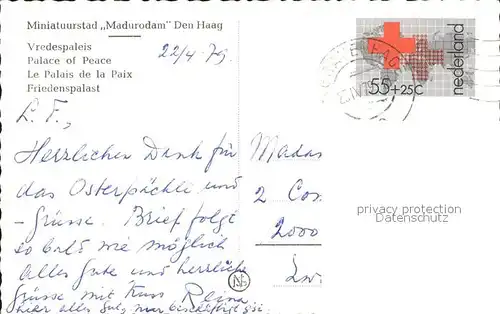 Miniatuurstad „Madurodam" Den Haag
Vredespaleis
Palace of Peace
Le Palais de la Paix
Friedenspalast
22/4-79
nederland
55+25C
L. F.,
Herzlichen Dank für
das Osterpäckli und
-Grüsse. Brief folgt
so bald wie möglich
Alles Gute und herzliche
Grüsse mit Kuss
hier alles gut, nur
Madas
2 Con
2000
privacy protection
Datenschutz